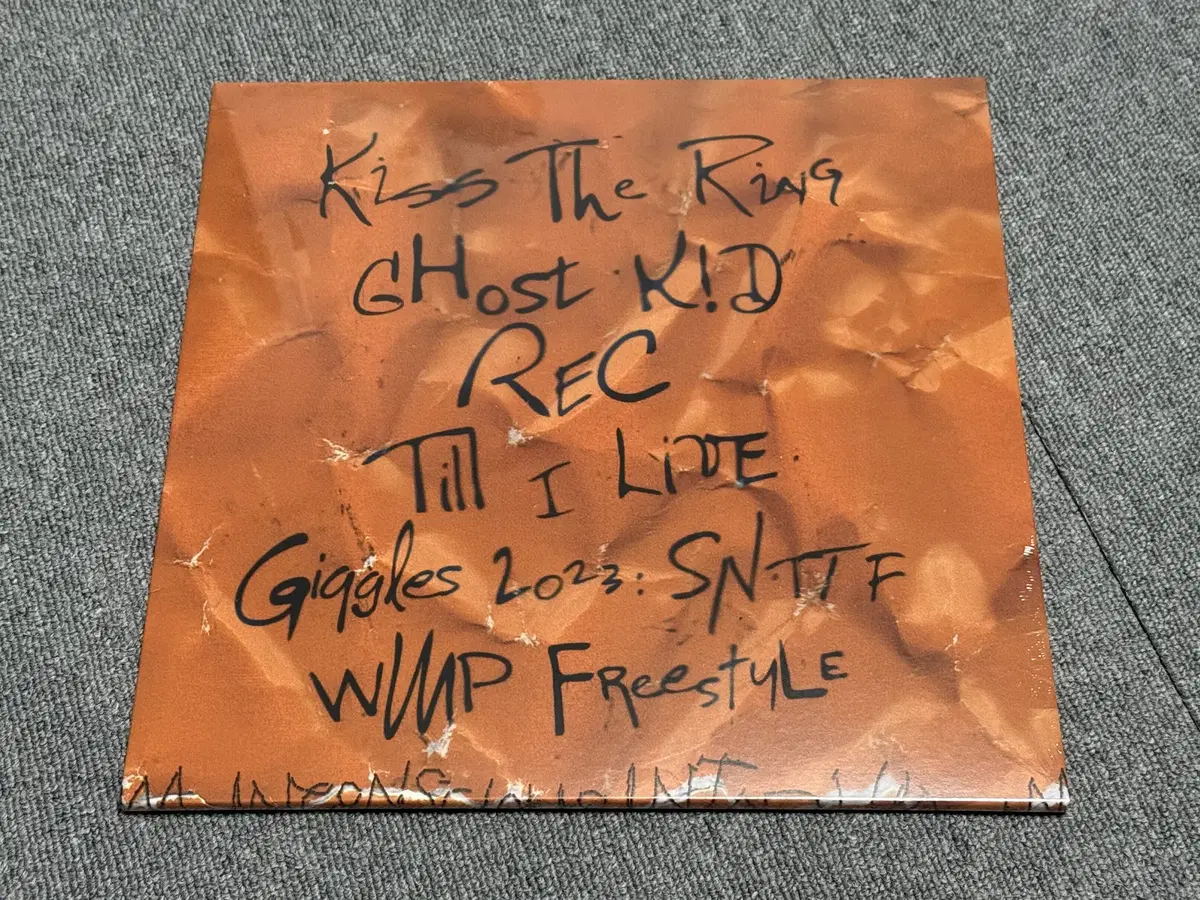 Kiss The Ring
GHost K!D
REC
Till I LiVE.
Giggles 2023: SNTTF
WUMP FReestyLE